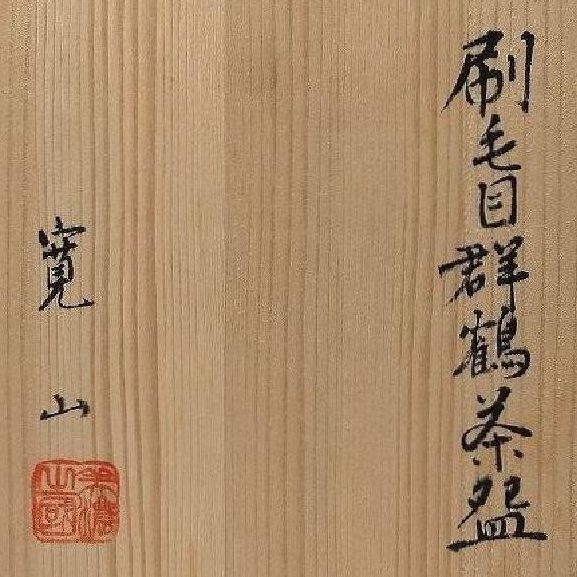 刷毛目群鶴茶盌
寛山